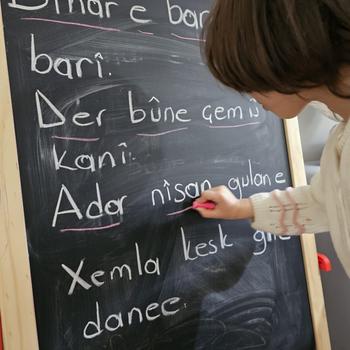 Bihar e bar
barî.
Der bûne çem û
kanî.
Adar nîsan gulan e
Xemla kesk
danee.